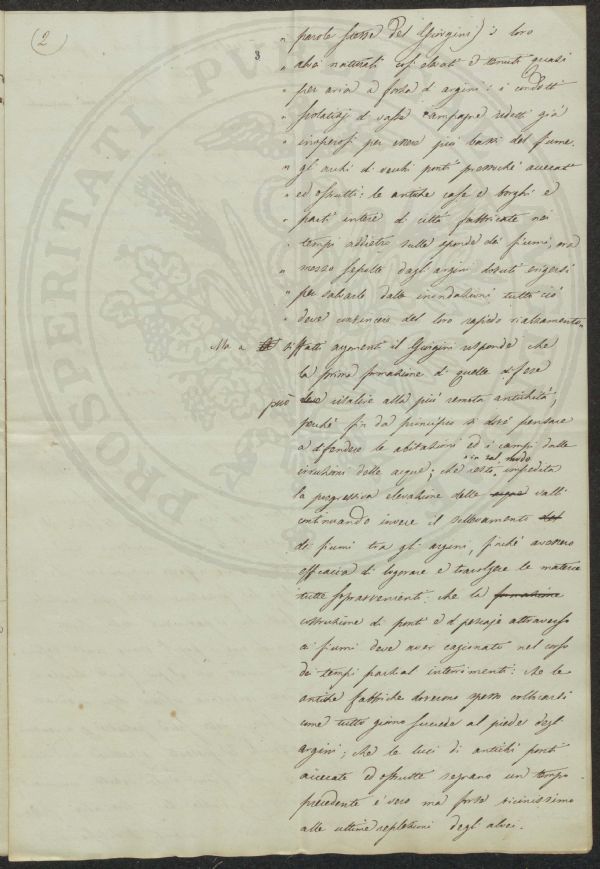 (2)
3
" parole stesse del Giorgini) i loro
" alvei naturali così elevati e tenuti quasi
" per aria a forza d'argini: i condotti
" scolatizj di vaste campagne ridotti già
" inoperosi per essere più bassi del fiume,
" gli archi di vecchi ponti pressoché accecati
" ed ostrutti: le antiche case e borghi e
" parti intere di città fabbricate nei
" tempi addietro sulle sponde dei fiumi, ora
" mezzo sepolte dagli argini dovuti erigersi
" per salvarle dalle inondazioni tutto ciò
" deve convincere del loro rapido rialzamento "
Ma a siffatti argomenti il Giorgini risponde che
la prima formazione di quelle difese
può risalire alla più remota antichità,
perché fin da principio si dové pensare
a difendere le abitazioni ed i campi dalle
in tal modo
irruzioni delle acque; che restò impedita
la progressiva elevazione delle acque valli
continuando invece il sollevamento del
dei fiumi tra gli argini, finché avessero
efficacia di logorare e travolgere le materie
tutte sopravvenienti: che la formazione
costruzione di ponti e di pescaje attraverso
ai fiumi deve aver cagionato nel corso
dei tempi parziali interrimenti: che le
antiche fabbriche dovevano spesso collocarsi
come tutto giorno succede al piede degli
argini; che le luci di antichi ponti
accecate ed ostrutte segnano un tempo
precedente è vero ma forse vicinissimo
alle ultime replezioni degli alvei.
PROSPERITATI PUBLICAE